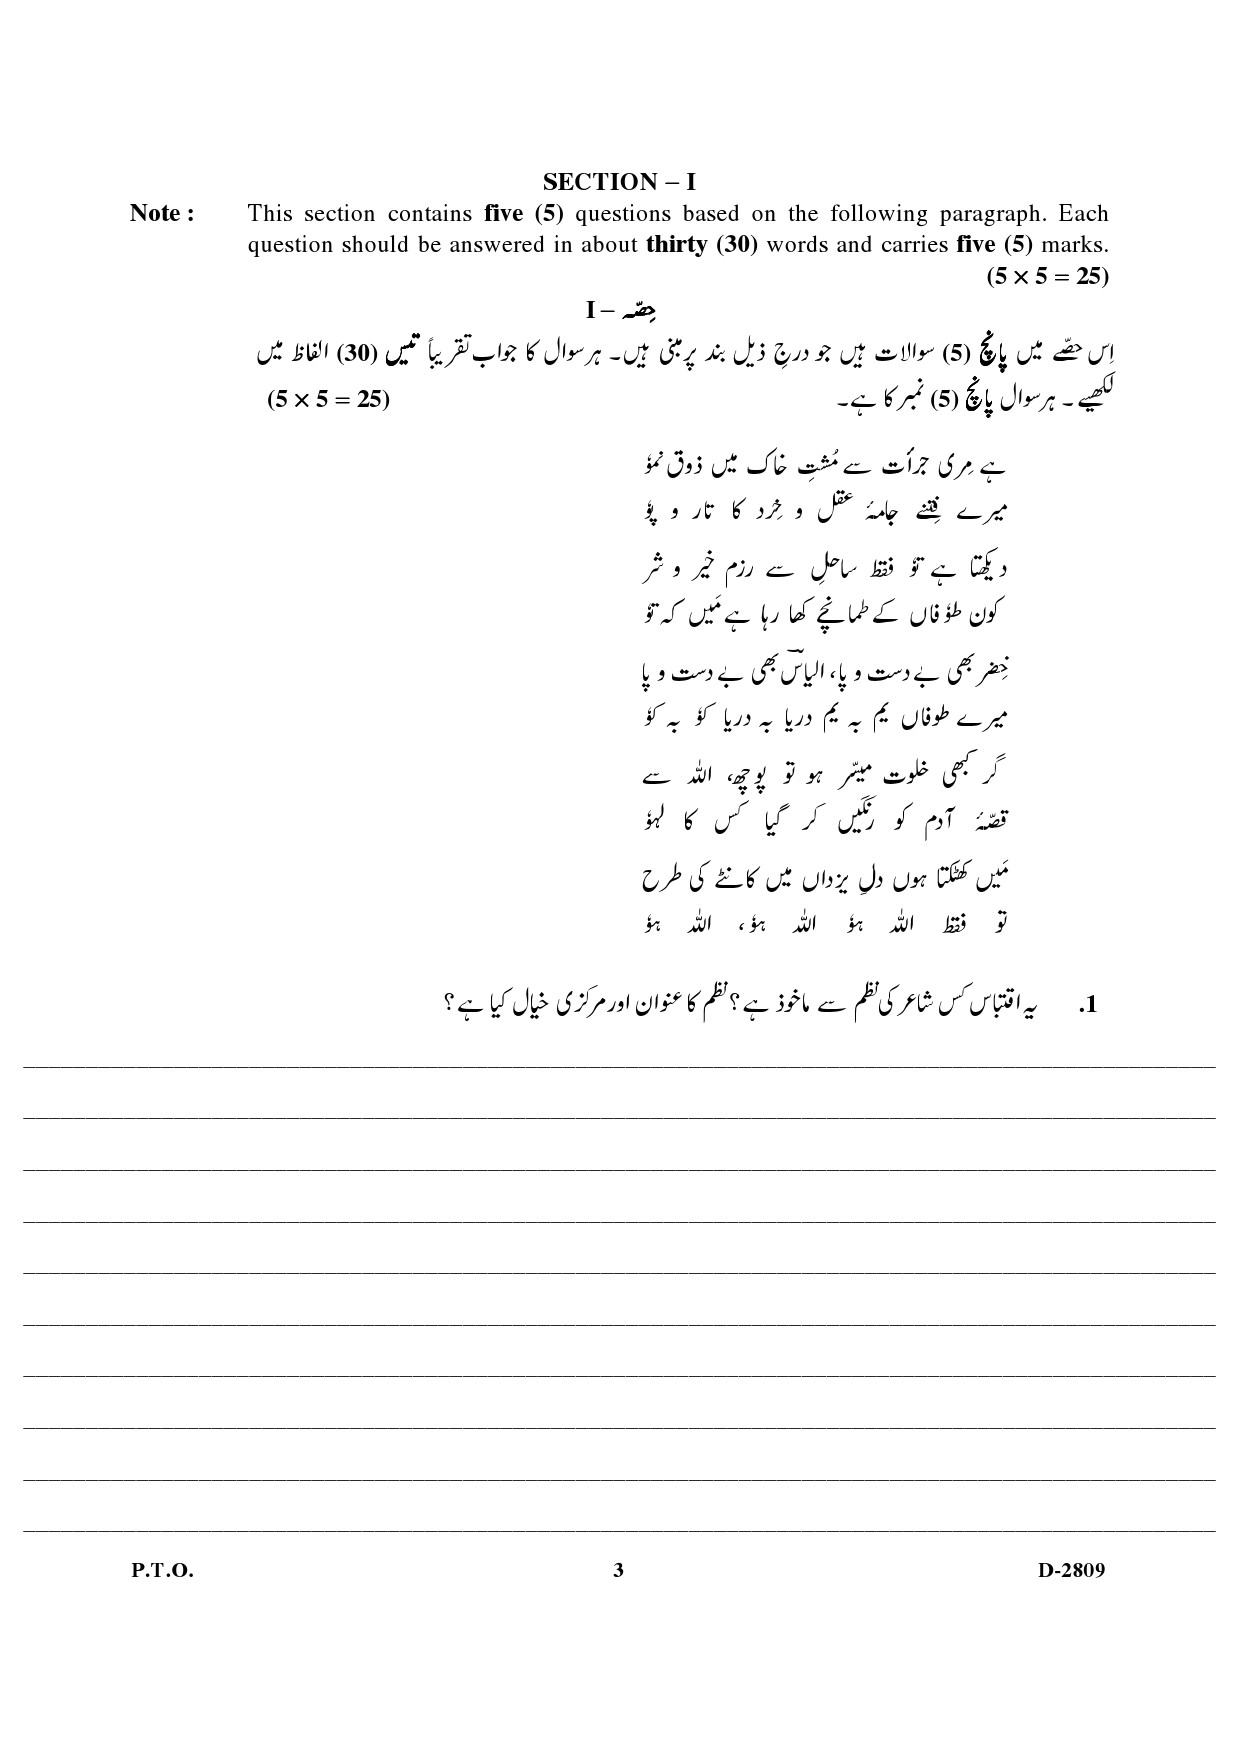 SECTION – I
Note : This section contains five (5) questions based on the following paragraph. Each
question should be answered in about thirty (30) words and carries five (5) marks.
(5 × 5 = 25)
حِصّہ – I
اِس حصّے میں پانچ (5) سوالات ہیں جو درجِ ذیل بند پر مبنی ہیں۔ ہر سوال کا جواب تقریباً تیس (30) الفاظ میں
لکھیے۔ ہر سوال پانچ (5) نمبر کا ہے۔ (5 × 5 = 25)
ہے مِری جرأت سے مُشتِ خاک میں ذوق نموٗ
میرے فِتنے جامۂ عقل و خِرد کا تار و پوٗ
دیکھتا ہے توٗ فقط ساحلِ سے رزم خیر و شر
کون طوٗفاں کے طمانچے کھا رہا ہے مَیں کہ توٗ
خِضر بھی بے دست و پا، الیاسؔ بھی بے دست و پا
میرے طوفاں یم بہ یم دریا بہ دریا کوٗ بہ کوٗ
گر کبھی خلوت میسّر ہو تو پوچھ، اللہ سے
قصّۂ آدم کو رَنگیں کر گیا کس کا لہوٗ
مَیں کھٹکتا ہوں دلِ یزداں میں کانٹے کی طرح
تو فقط اللہ ہوٗ اللہ ہوٗ، اللہ ہوٗ
1. یہ اقتباس کس شاعر کی نظم سے ماخوذ ہے؟ نظم کا عنوان اور مرکزی خیال کیا ہے؟
P.T.O. 3 D-2809